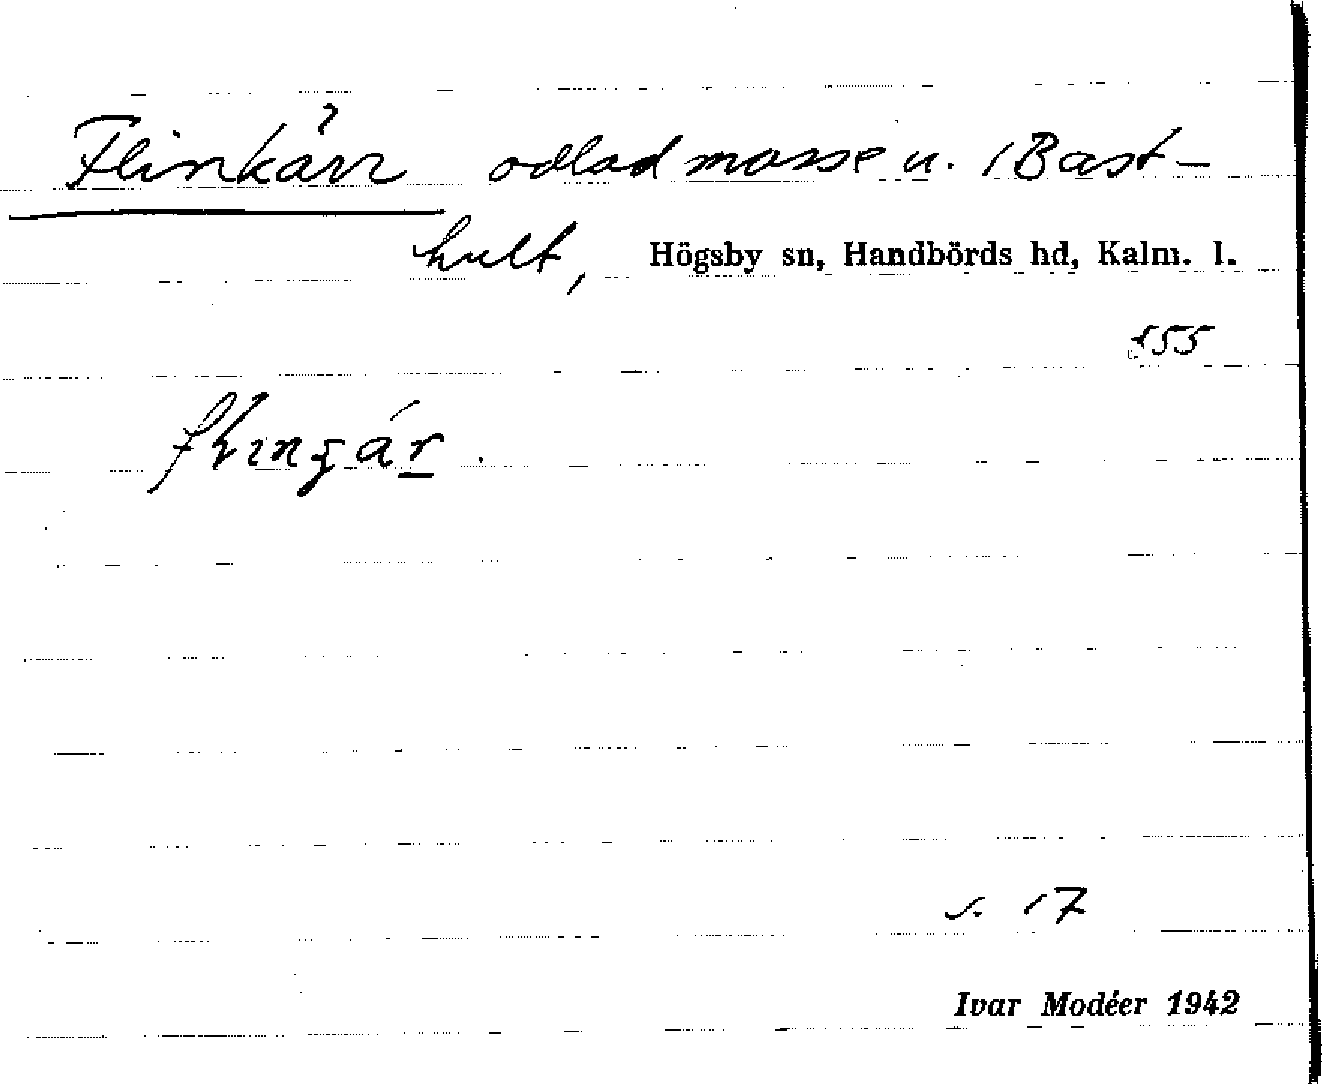 Flinkärr odlad mosse u. Bast-
hult, Högsby sn, Handbörds hd, Kalm. l.
155
s. 17
Ivar Modéer 1942